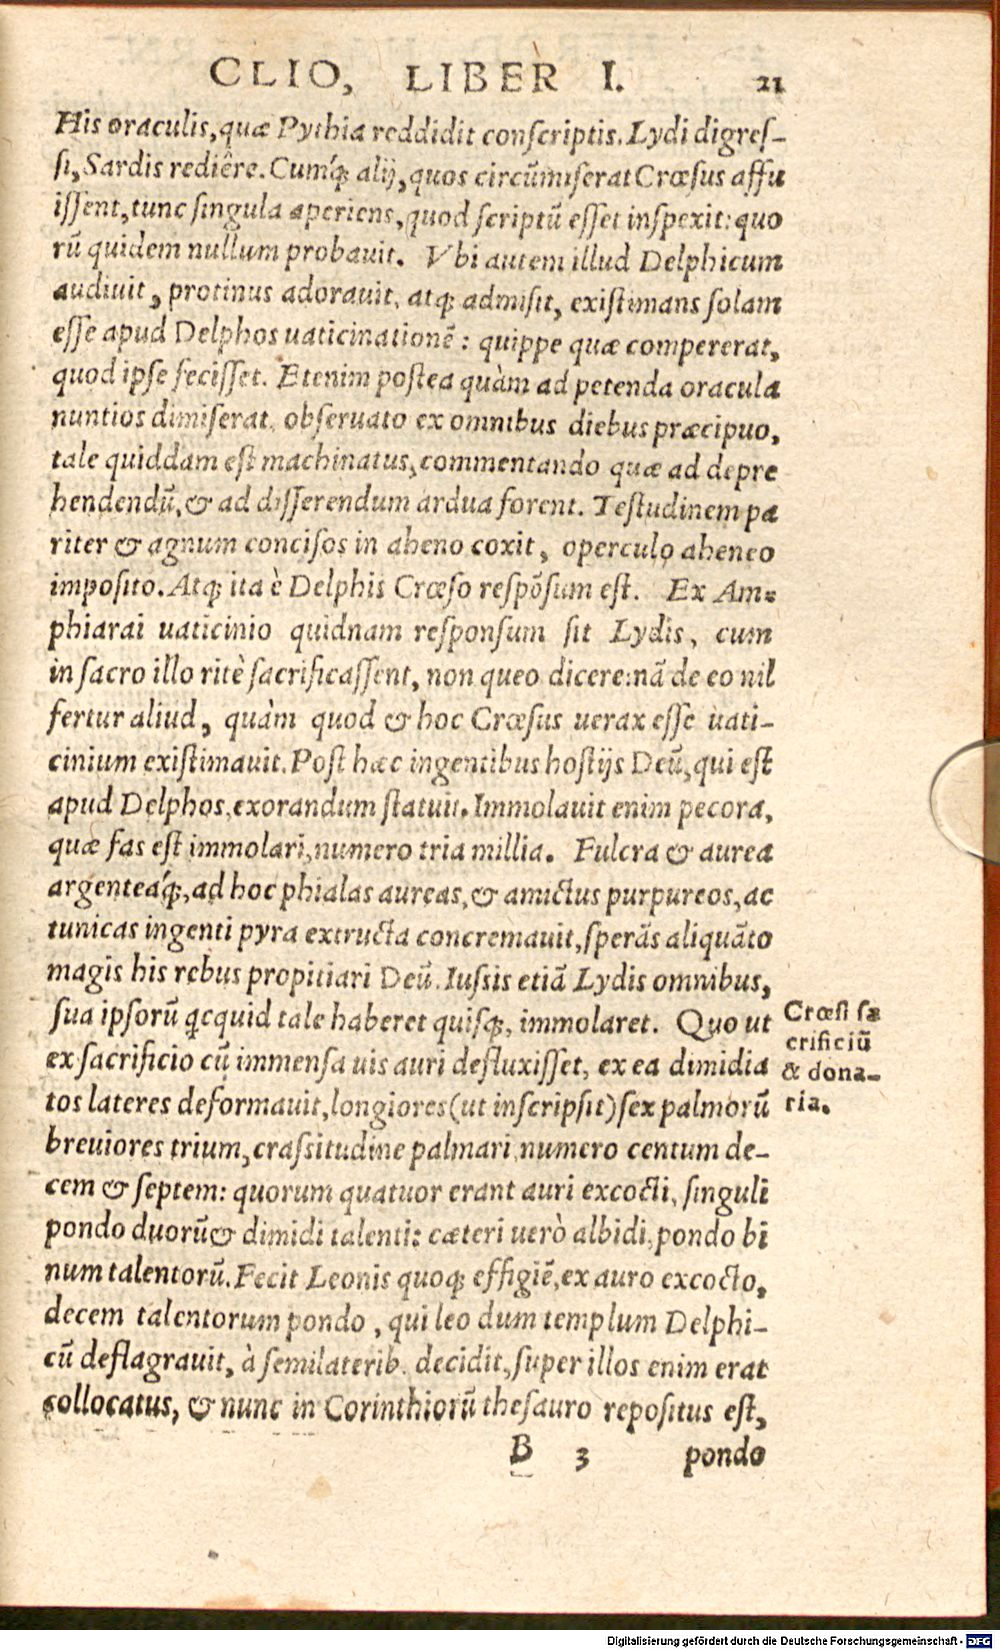 CLIO, LIBER I. 21
His oraculis, quæ Pythia reddidit conscriptis. Lydi digreſ-
ſi, Sardis rediêre. Cumq́; alij, quos circũmiſerat Crœſus affu
iſſent, tunc ſingula aperiens, quod ſcriptũ eſſet inſpexit: quo
rũ quidem nullum probauit. Vbi autem illud Delphicum
audiuit, protinus adorauit, atq; admiſit, exiſtimans ſolam
eſſe apud Delphos uaticinationẽ: quippe quæ compererat,
quod ipſe feciſſet. Etenim poſtea quàm ad petenda oracula
nuntios dimiſerat, obſeruato ex omnibus diebus præcipuo,
tale quiddam eſt machinatus, commentando quæ ad depre
hendendũ, & ad diſſerendum ardua forent. Teſtudinem pa
riter & agnum conciſos in aheno coxit, operculo aheneo
impoſito. Atq; ita è Delphis Crœſo reſpõſum eſt. Ex Am-
phiarai uaticinio quidnam reſponſum ſit Lydis, cum
in ſacro illo ritè ſacrificaſſent, non queo dicere: nã de eo nil
fertur aliud, quàm quod & hoc Crœſus uerax eſſe uati-
cinium exiſtimauit. Poſt hæc ingentibus hoſtijs Deũ, qui eſt
apud Delphos, exorandum ſtatuit. Immolauit enim pecora,
quæ fas eſt immolari, numero tria millia. Fulcra & aurea
argenteaq́;, ad hoc phialas aureas, & amictus purpureos, ac
tunicas ingenti pyra extructa concremauit, ſperãs aliquãto
magis his rebus propitiari Deũ. Iuſsis etiã Lydis omnibus,
ſua ipſorũ qcquid tale haberet quiſq;, immolaret. Quo ut
ex ſacrificio cũ immenſa uis auri defluxiſſet, ex ea dimidia
tos lateres deformauit, longiores (ut inſcripſit) ſex palmorũ
breuiores trium, craſsitudine palmari, numero centum de-
cem & ſeptem: quorum quatuor erant auri excocti, ſinguli
pondo duorũ & dimidi talenti: cæteri uerò albidi, pondo bi
num talentorũ. Fecit Leonis quoq; effigiẽ, ex auro excocto,
decem talentorum pondo, qui leo dum templum Delphi-
cũ deflagrauit, à ſemilaterib. decidit, ſuper illos enim erat
collocatus, & nunc in Corinthiorũ theſauro repoſitus eſt,
B 3 pondo
Crœſi ſa
crificiũ
& dona-
ria.
Digitalisierung gefördert durch die Deutsche Forschungsgemeinschaft - DFG